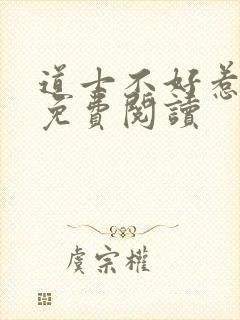 道士不好惹
免費閱讀
虞宗權